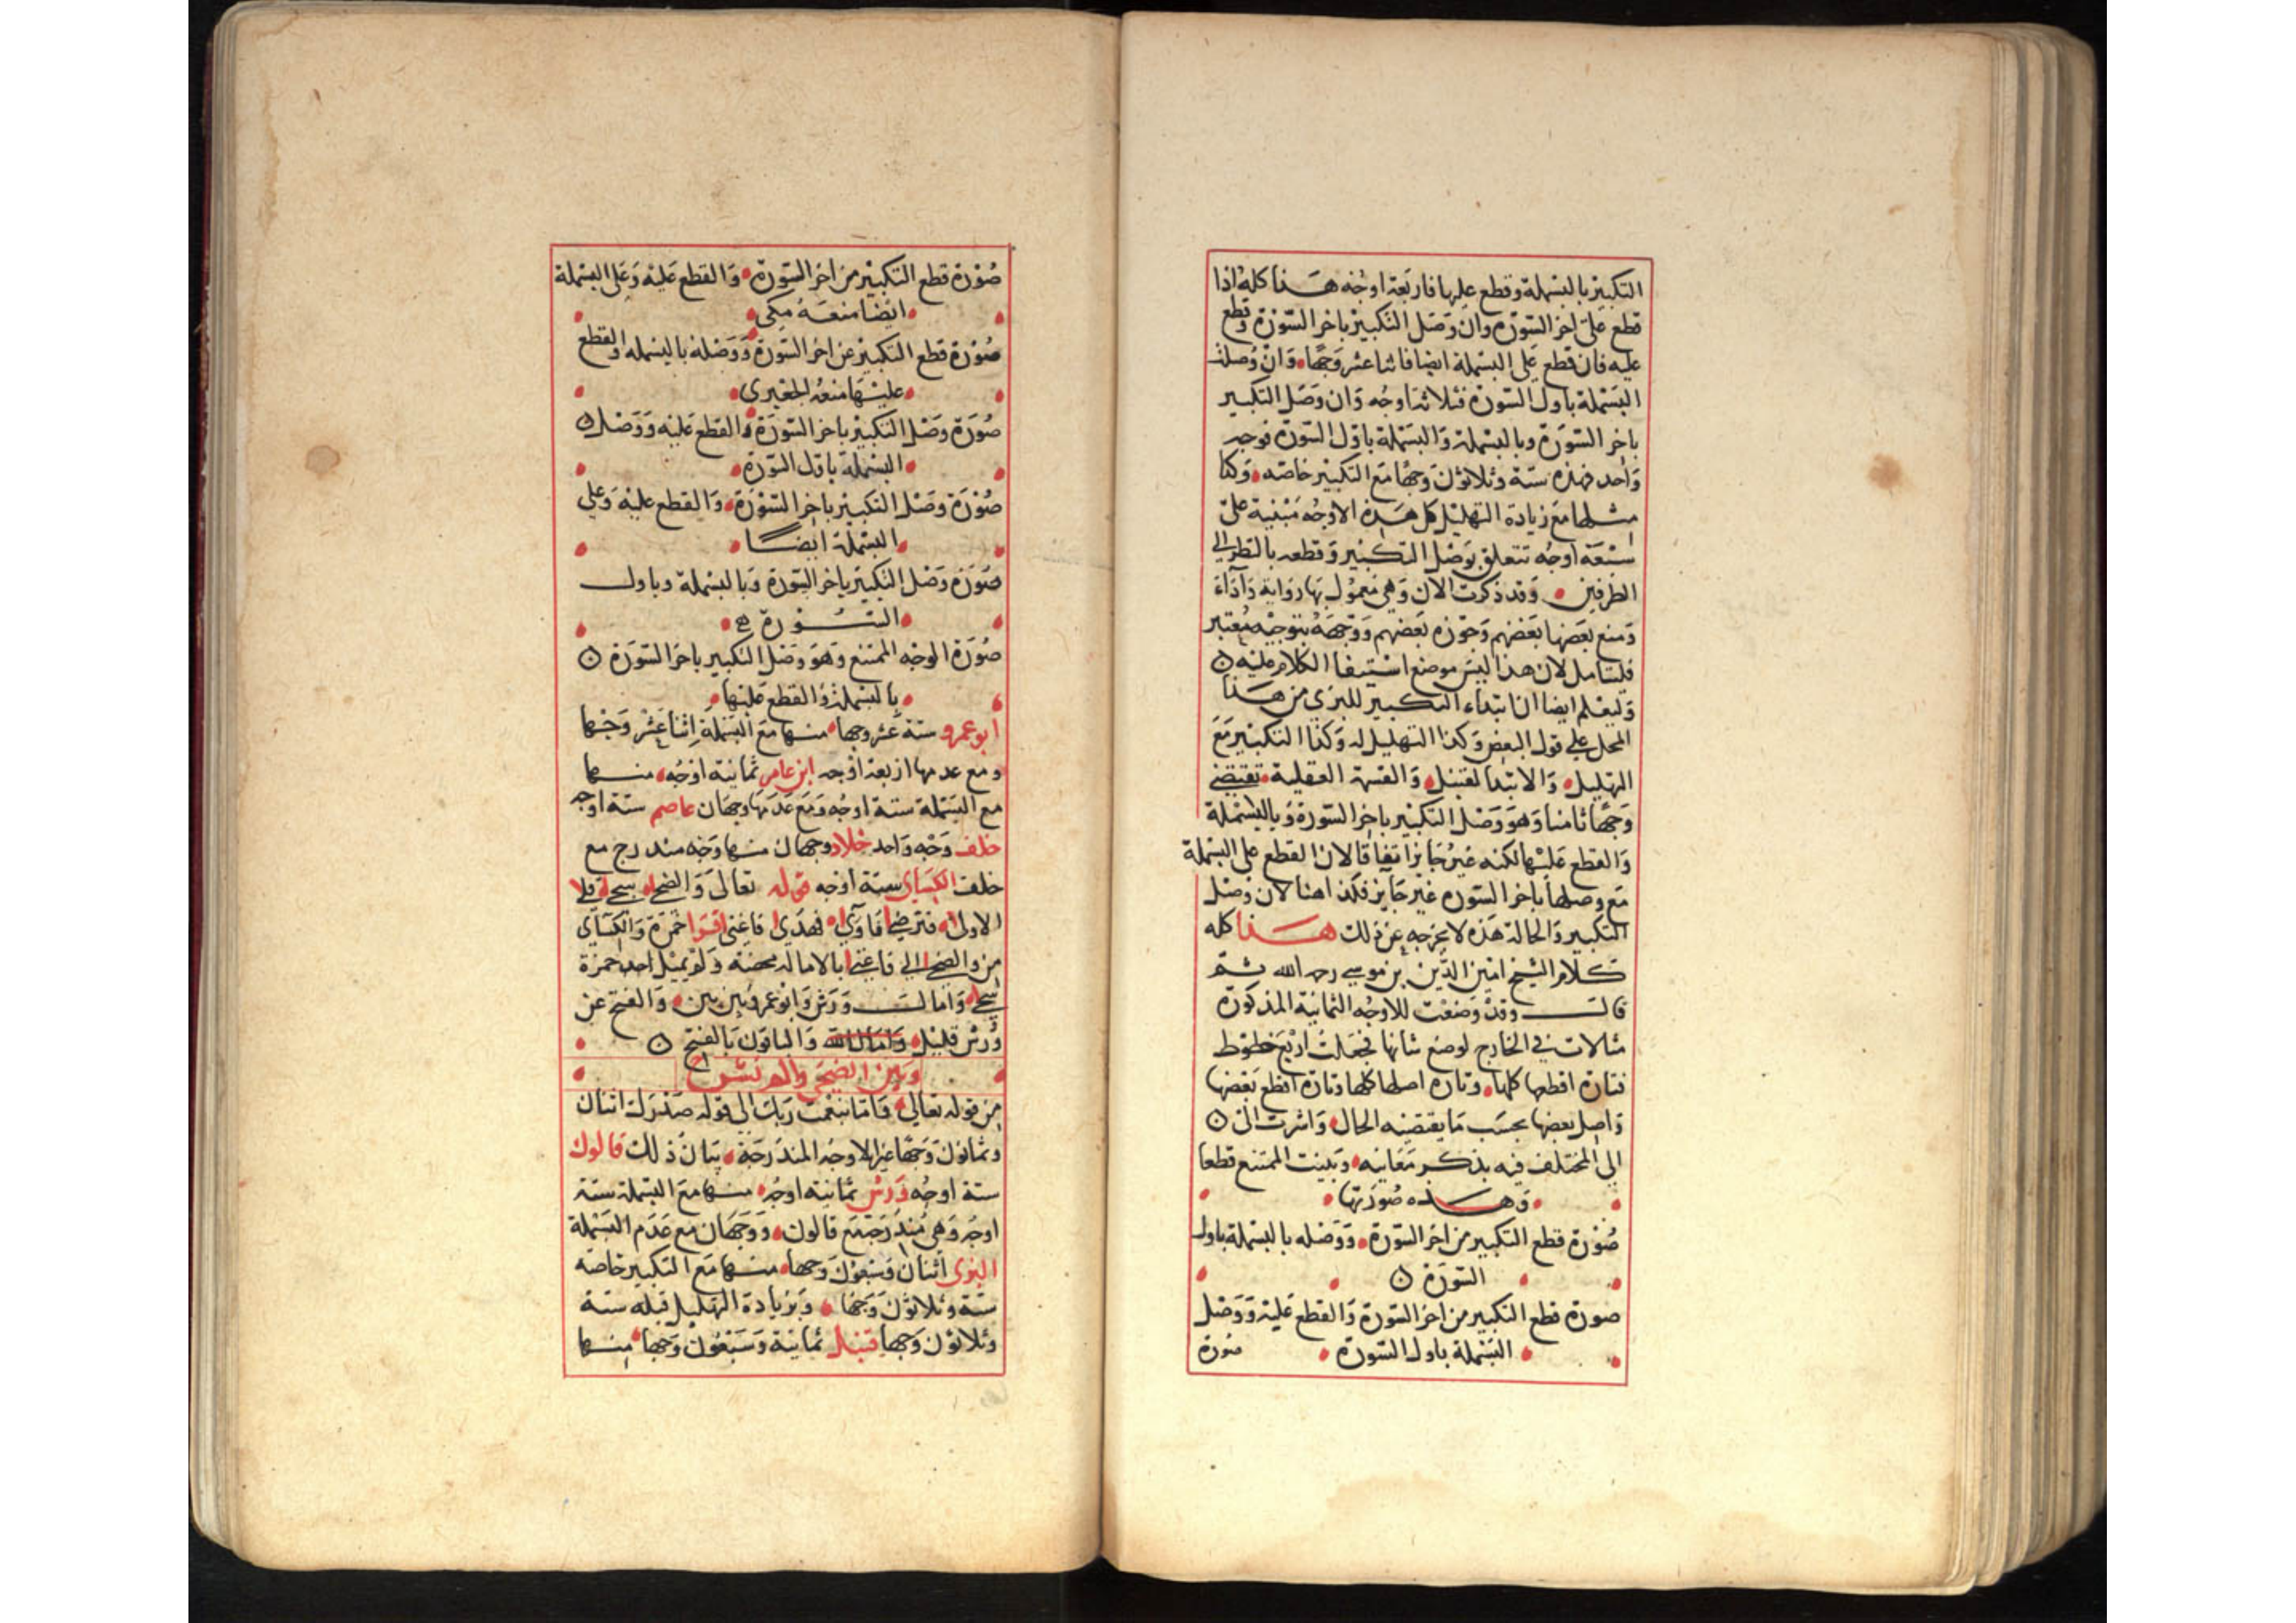 التكبير بالبسملة وقطع عليها فاربعة اوجه هذا كله اذا
قطع على اخر السورة وان وصل التكبير باخر السورة وقطع
عليه فان قطع على البسملة ايضا فاثنا عشر وجها وان وصلت
البسملة باول السورة فثلاثة اوجه وان وصل التكبير
باخر السورة وبالبسملة والبسملة باول السورة فوجه
واحد فهذه ستة وثلاثون وجها مع التكبير خاصه وكذا
مثلها مع زيادة التهليل كل هذه الاوجه مبنية على
سبعة اوجه تتعلق بوصل التكبير وقطعه بالنظر الى
الطرفين وقد ذكرت الان وهي معمول بها رواية وآداء
ومنع بعضها بعضهم وجوزه بعضهم ووجهه بتوجيه معتبر
فليتامل لان هذا ليس موضع استيفا الكلام عليه
وليعلم ايضا ان ابتداء التكبير للبزي من هذا
المحل على قول البعض وكذا التهليل له وكذا التكبير مع
التهليل والابتدا لقنبل والقسمة العقلية تقتضي
وجها ثامنا وهو وصل التكبير باخر السورة وبالبسملة
والقطع عليها لكنه غير جايز اتفاقا لان القطع على البسملة
مع وصلها باخر السوره غير جايز فكذا هنا لان وصل
التكبير والحالة هذه لا يخرجه عن ذلك هذا كله
كلام الشيخ امين الدين بن موسى رحمه الله ثم
قال وقد وضعت للاوجه الثمانية المذكورة
مثالات في الخارج لوضع شانها فجعلت اربع خطوط
فتارة اقطعها كلها وتارة اصلها كلها وتارة اقطع بعضها
واصل بعضها بحسب ما يقتضيه الحال واشرت الى
الى المختلف فيه بذكر معانيه وبينت الممتنع قطعا
وهذه صورتها
صورة قطع التكبير من اخر السورة ووصله بالبسملة باول
السورة
صورة قطع التكبير من اخر السورة والقطع عليه ووصل
البسملة باول السورة صورة
صورة قطع التكبير من اخر السورة والقطع عليه وعلى البسملة
ايضا منعه مكي
صورة قطع التكبير عن اخر السورة ووصله بالبسمله والقطع
عليها منعه الجعبري
صورة وصل التكبير باخر السورة والقطع عليه ووصل
البسملة باول السورة
صورة وصل التكبير باخر السورة والقطع عليه وعلى
البسملة ايضا
صورة وصل التكبير باخر السورة وبالبسملة وباول
السورة
صورة الوجه الممتنع وهو وصل التكبير باخر السورة
بالبسملة والقطع عليها
ابو عمرو ستة عشر وجها منها مع البسملة اثنا عشر وجها
ومع عدمها اربعة اوجه ابن عامر ثمانية اوجه منها
مع البسملة ستة اوجه ومع عدمها وجهان عاصم ستة اوجه
خلف وجه واحد خلاد وجهان منها وجه مندرج مع
خلف الكسائي ستة اوجه قوله تعالى والضحى سجى قلى
الاولى فترضى فاوى فهدى فاغنى حمزة والكسائي
من والضحى الى فاغنى بالامالة محضة ولم يمل حمزة
سجى وامال ورش وابو عمرو بين بين والفتح عن
ورش قليل وامال الله والباقون بالفتح
وبين الضحى والم نشرح
من قوله تعالى فاما بنعمت ربك الى قوله صدرك اثنان
وثمانون وجها غير الاوجه المندرجة بيان ذلك قالون
ستة اوجه ورش ثمانية اوجه منها مع البسملة ستة
اوجه وهي مندرجة مع قالون ووجهان مع عدم البسملة
البزي اثنان وسبعون وجها منها مع التكبير خاصه
ستة وثلاثون وجها وبزيادة التهليل قبله ستة
وثلاثون وجها قنبل ثمانية وسبعون وجها منها